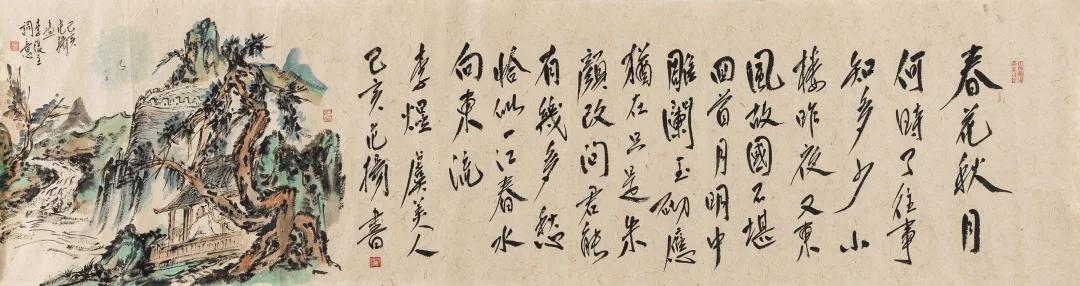 春花秋月
何時了往事
知多少小
樓昨夜又東
風故國不堪
回首月明中
雕闌玉砌應
猶在只是朱
顏改問君能
有幾多愁
恰似一江春水
向東流
李煜虞美人
己亥范揚書
己亥
范揚
李後主
詞意